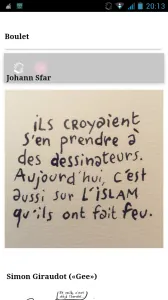 20:13
Boulet
Johann Sfar
ILS CROYAIENT
S'EN PRENDRE À
DES DESSINATEURS.
AUJOURD'HUI, C'EST
AUSSI SUR L'ISLAM
QU'ILS ONT FAIT FEU.
Simon Giraudot («Gee»)